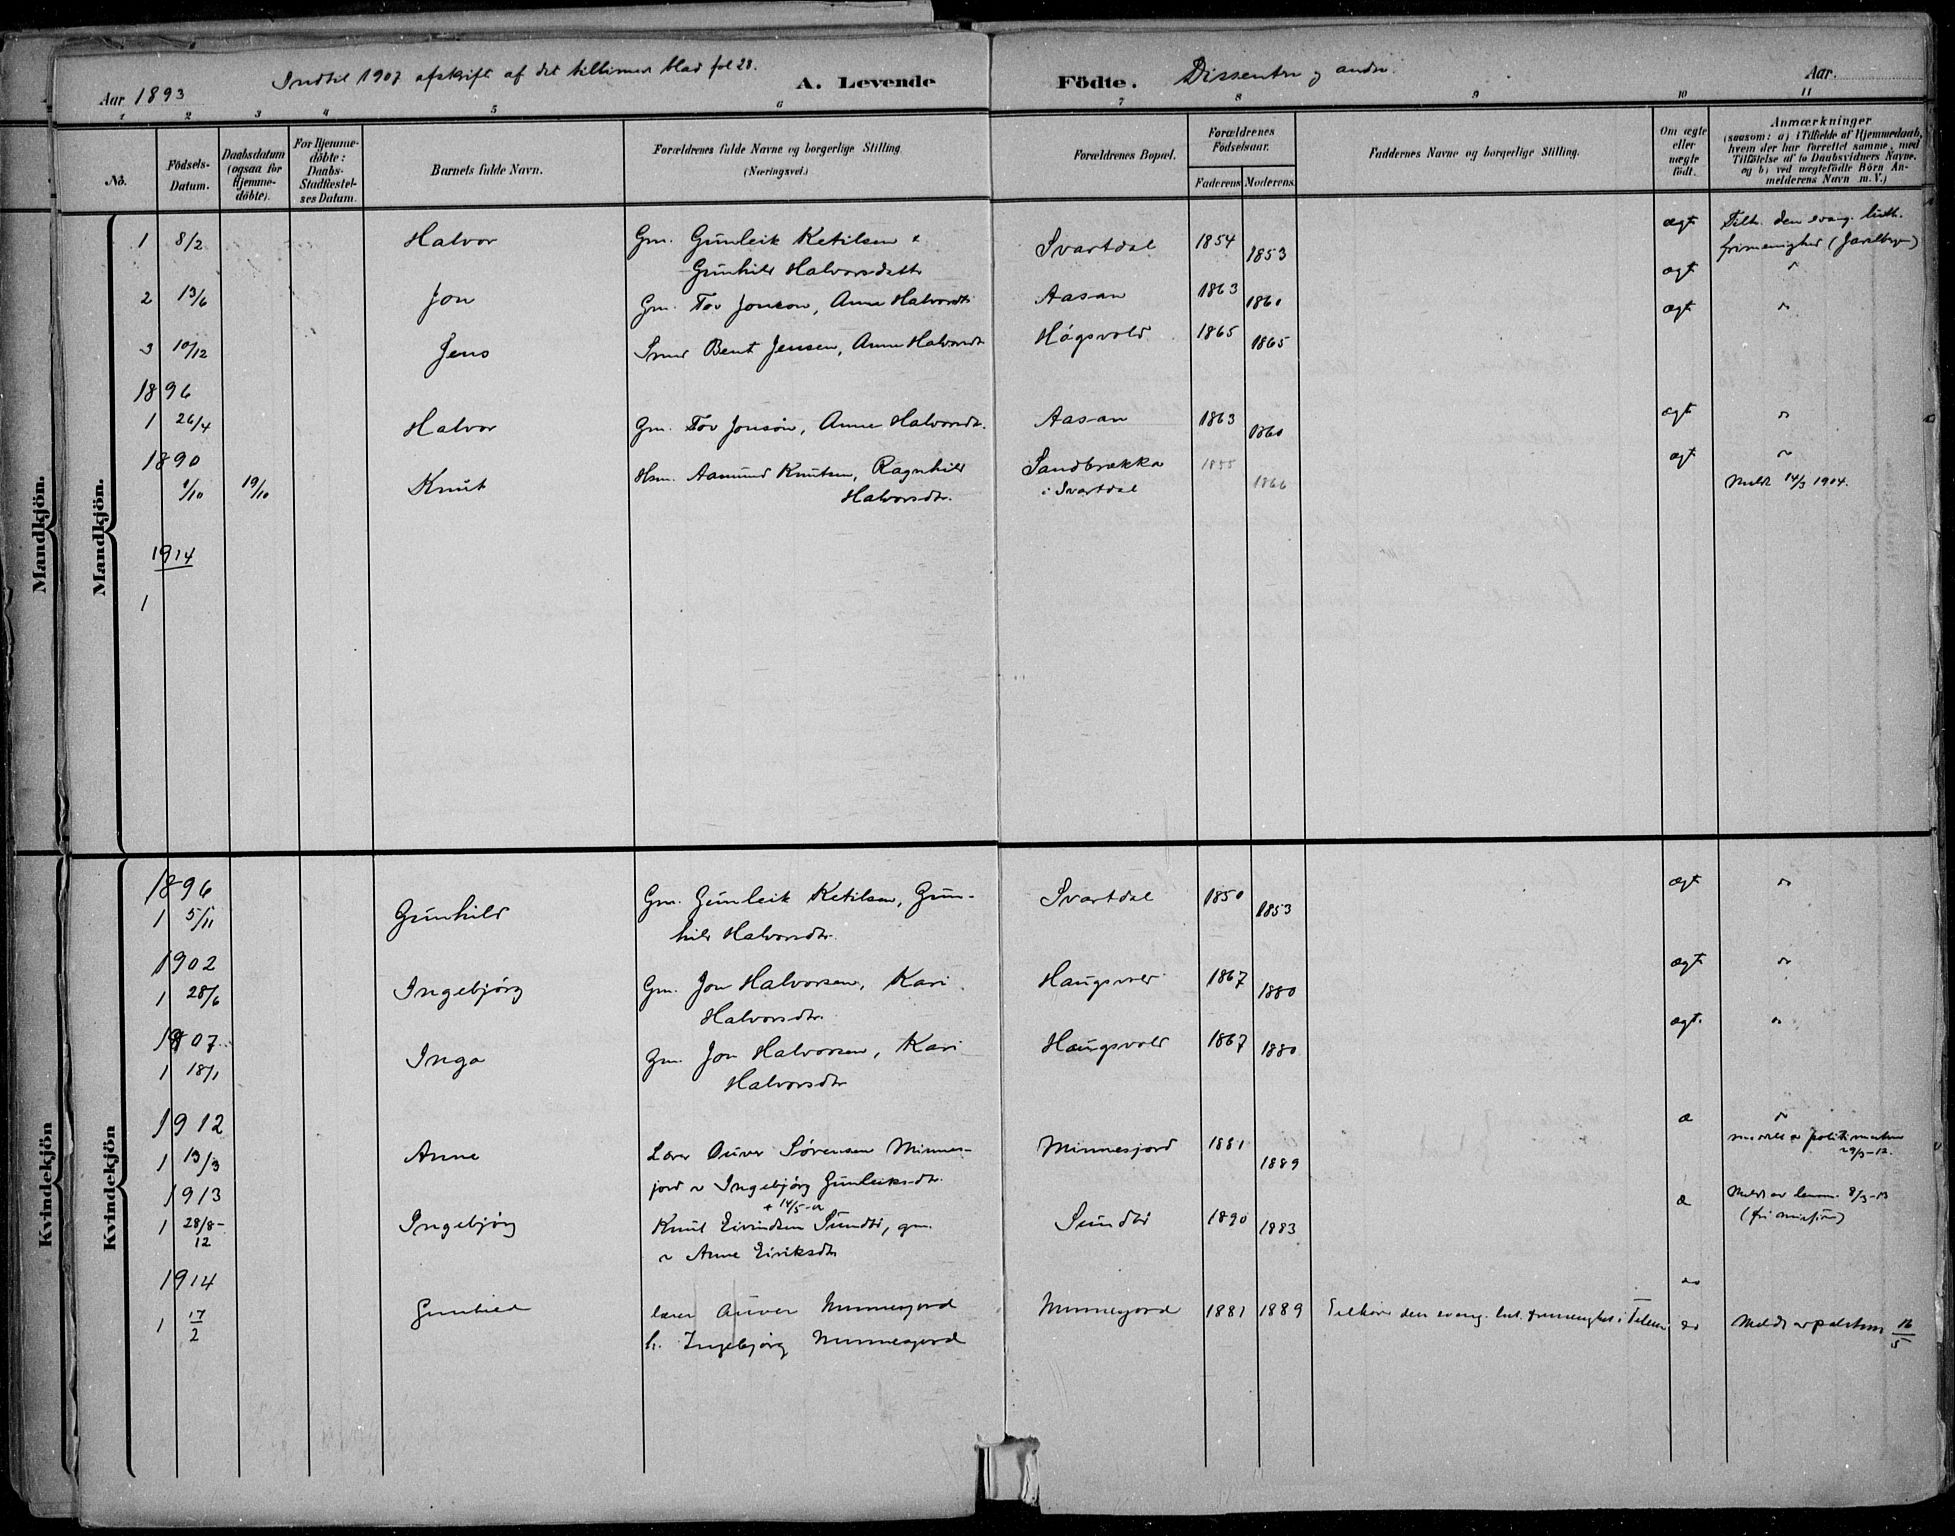 Indtil 1907 afskrift af det tillimede blad fol 28.
Aar 1893
A. Levende Födte. Dissentere og andre.
Aar.
1 2 3 4 5 6 7 8 9 10 11
No.
Födsels-Datum.
Daabsdatum (ogsaa for Hjemme-döbte).
For Hjemme-döbte: Daabs-Stadfæstel-ses Datum.
Barnets fulde Navn.
Forældrenes fulde Navne og borgerlige Stilling (Næringsvei.)
Forældrenes Bopæl.
Forældrenes Födselsaar.
Faderens Moderens.
Faddernes Navne og borgerlige Stilling.
Om ægte eller uægte født.
Anmærkninger (saasom: a) i Tilfælde af Hjemmedaab, hvem der har forrettet samme, med Tilføielse af to Daabsvidners Navne. og b) ved uægtefødte Börn An-melderens Navn m. V.)
Mandkjön. Mandkjön.
1 8/2 Halvor Gm. Gunleik Ketilsen & Svartdal 1854 1853 ægt Tilh. den evang. luth.
Gunhild Halvorsdatter frimenighed (Jarlsberg)
2 13/6 Jon Gm. Tov Jonson, Anne Halvorsdtr Aasan 1863 1860 ægt "
3 10/12 Jens Smed Bent Jensen, Anne Halvorsdtr Högsvold 1865 1865 ægt "
1896
1 26/4 Halvor Gm. Tov Jonson, Anne Halvorsdtr. Aasan 1863 1860 ægt "
1890
1/10 19/10 Knut Hsm. Aasmund Knutsen, Ragnhild Sandbrække 1855 1866 ægt "
Halvorsdtr. i Svartdal Meldt 14/3 1904.
1914
1
Kvindekjön Kvindekjön
1896
1 5/11 Gunhild Gm. Gunleik Ketilsen, Gun- Svartdal 1850 1853 ægt "
hild Halvorsdtr.
1902
1 28/6 Ingebjörg Gm. Jon Halvorsen, Kari Haugsvold 1867 1880 ægt "
Halvorsdtr.
1907
1 18/1 Inga Gm. Jon Halvorsen, Kari Haugsvold 1867 1880 ægt. "
Halvorsdtr
1912
1 13/3 Anne Lærer Auver Sørensen Minnes- Minnesjord 1881 1889 æ "
jord & Ingebjörg Gunleiksdtr. 29/3-12.
1913
1 28/8-12 Ingebjörg Knut Eivindsen Sundbö, gm. Sundbö 1890 1883 æ Meldt av lensm. 8/3-13
& Anne Eiriksdtr
1914
1 17/2 Gunhild lærer Auver Minnesjord Minnesjord 1881 1889 Tilhører den evang. lut. frimenighet i Telem. Meldt av 16/5
h. Ingebjörg Minnesjord